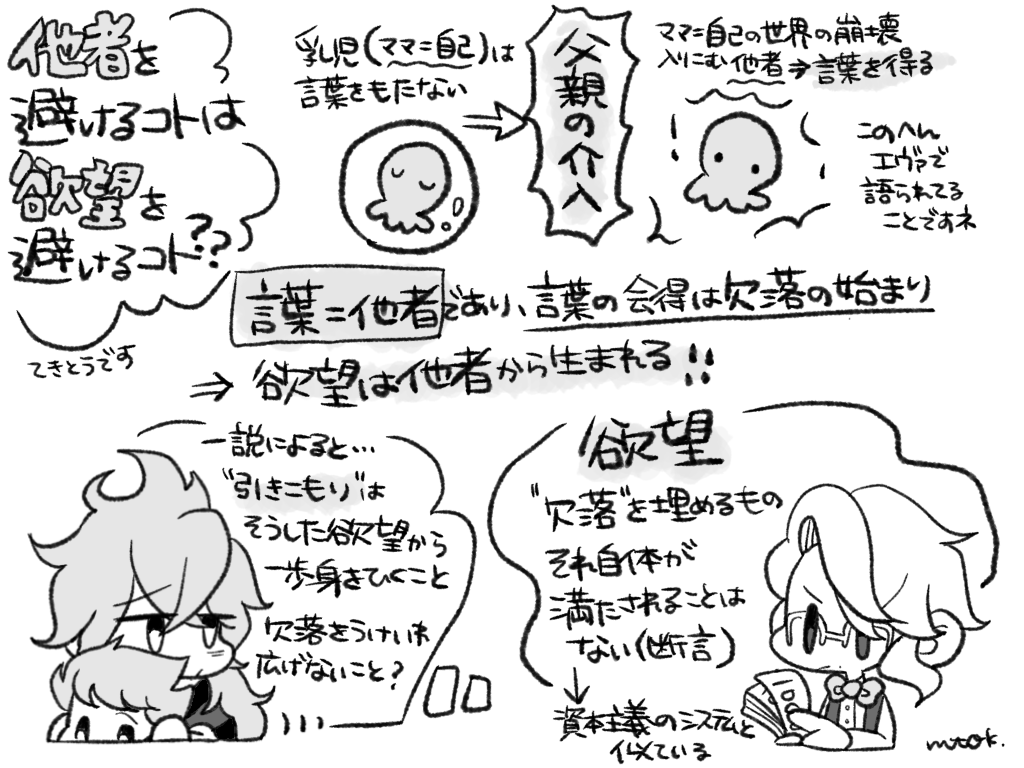 他者を
避けるコトは
欲望を
避けるコト??
てきとうです
乳児(ママ=自己)は
言葉をもたない
父親の介入
ママ=自己の世界の崩壊
入りこむ他者⇒言葉を得る
このへん
エヴァで
語られてる
ことですネ
言葉=他者であり、言葉の会得は欠落の始まり
⇒欲望は他者から生まれる!!
一説によると…
"引きこもり"は
そうした欲望から
一歩身をひくこと
欠落をうけいれ
広げないこと?
欲望
"欠落"を埋めるもの
それ自体が
満たされることは
ない(断言)
↓
資本主義のシステムと
似ている
mtok.